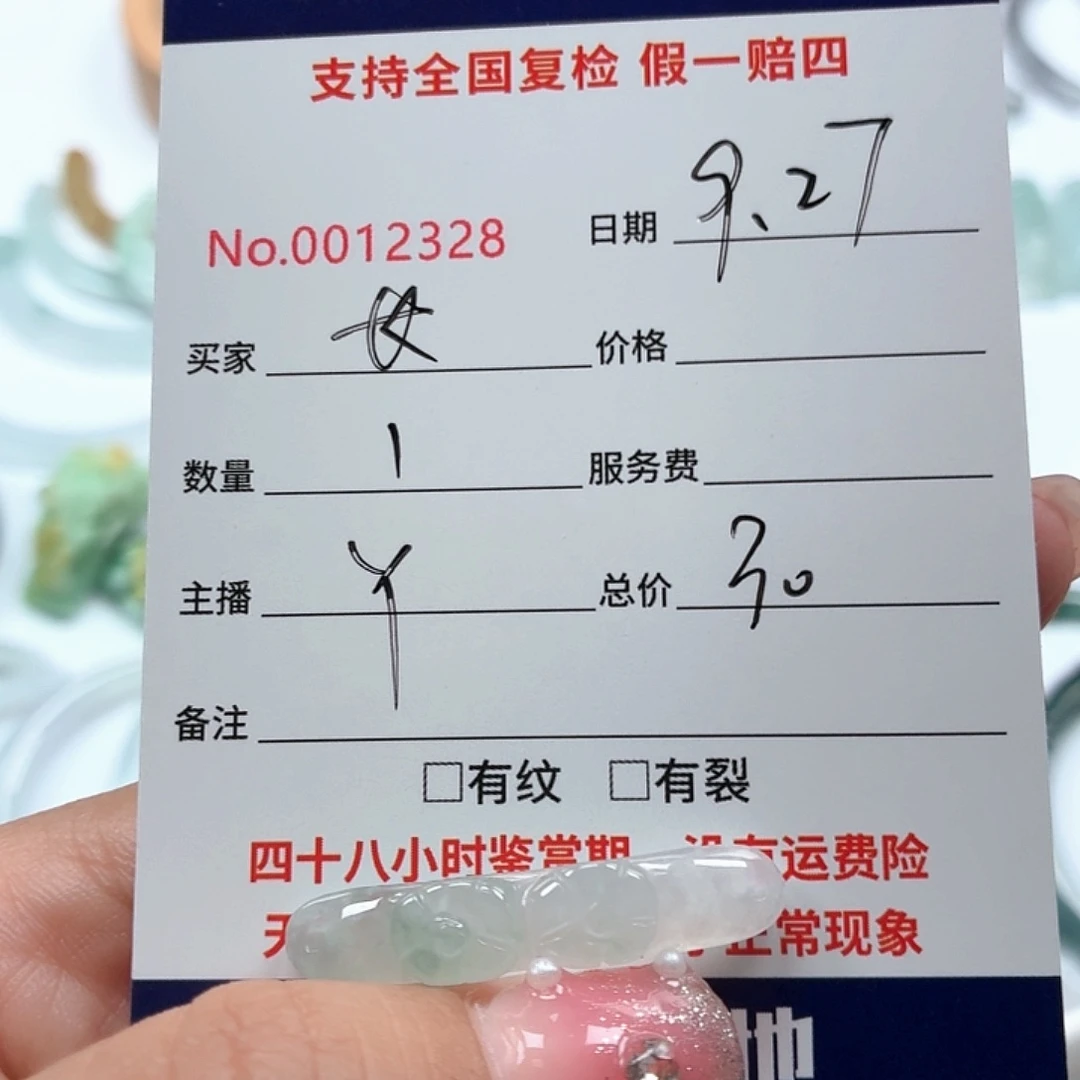 支持全国复检 假一赔四
No.0012328 日期 9.27
买家 价格
数量 1 服务费
主播 Y 总价 30
备注
□有纹 □有裂
四十八小时鉴赏期 没有运费险
正常现象
地